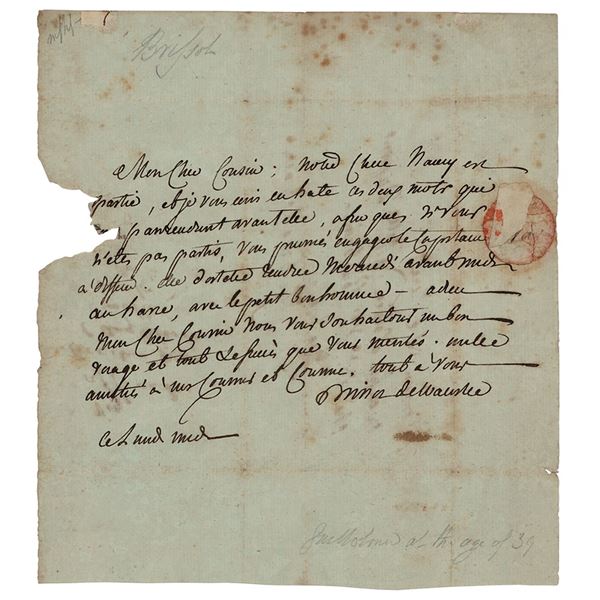 Brissot
Mon Cher Cousin ; notre Chere Nancy est
partie, et je vous ecris en hate ces deux mots qui
parviendront avant elle, afin que, si vous
n'etes pas partis, vous puissiés engager le Capitaine
à differer. elle doit etre rendue Mercredi avant midi
au havre, avec le petit bonhomme — adieu
Mon Cher Cousin Nous vous souhaitons un bon
voyage et tout le succès que vous merités. mille
amitiés à nos Cousins et Cousine. tout à vous
Brissot de Warville
ce Lundi midi
Guillotined at the age of 39